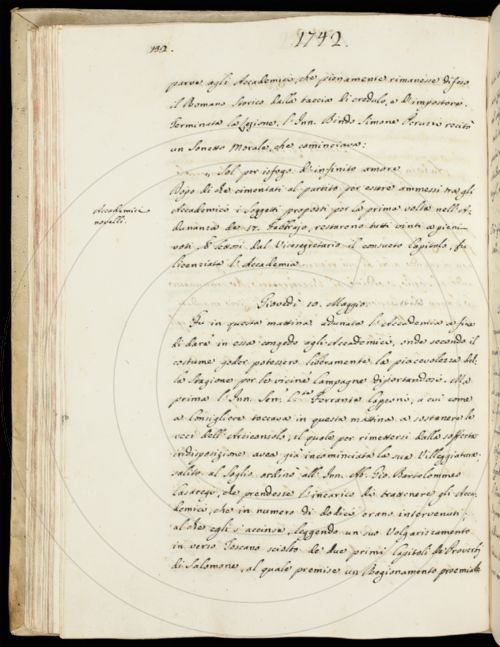 132.
1742.
parve agli Accademici, che pienamente rimanesse difeso
il Romano Storico dalla taccia di credulo, e d'impostore.
Terminata la lezione, l'Inn. Bindo Simone Peruzzi recitò
un Sonetto Morale, che cominciava:
Sol per isfogo d'infinito amore
Dopo di che cimentati al partito, per essere ammessi tra gli
Accademici novelli.
Accademici i Soggetti proposti per la prima volta nell'A-
dunanza de' 17. Febbrajo, restarono tutti vinti a pieni
voti, & letto dal Vicesegretario il consueto Capitolo, fu
licenziata l'Accademia.
Giovedì 10. Maggio.
Fu in questa mattina adunata l'Accademia a fine
di dare in essa congedo agli Accademici, onde secondo il
costume goder potessero liberamente la piacevolezza del-
la Stagione per le vicine Campagne diportandosi. Ma
prima l'Inn. Sen. Ferrante Capponi, a cui come
a Consigliere toccava in questa mattina a sostenere le
veci dell'Arciconsolo, il quale per rimettersi dalla sofferta
indisposizione avea già incominciata la sua Villeggiatura,
salito al Soglio ordinò all'Inn. Ab. Gio. Bartolommeo
Casaregi, che prendesse l'incarico di trattenere gli Acca-
demici, che in numero di dodici erano intervenuti;
al che egli s'accinse, leggendo un suo Volgarizzamento
in verso Toscano sciolto de' due primi Capitoli de' Proverbj
di Salomone, al quale premise un Ragionamento proemiale